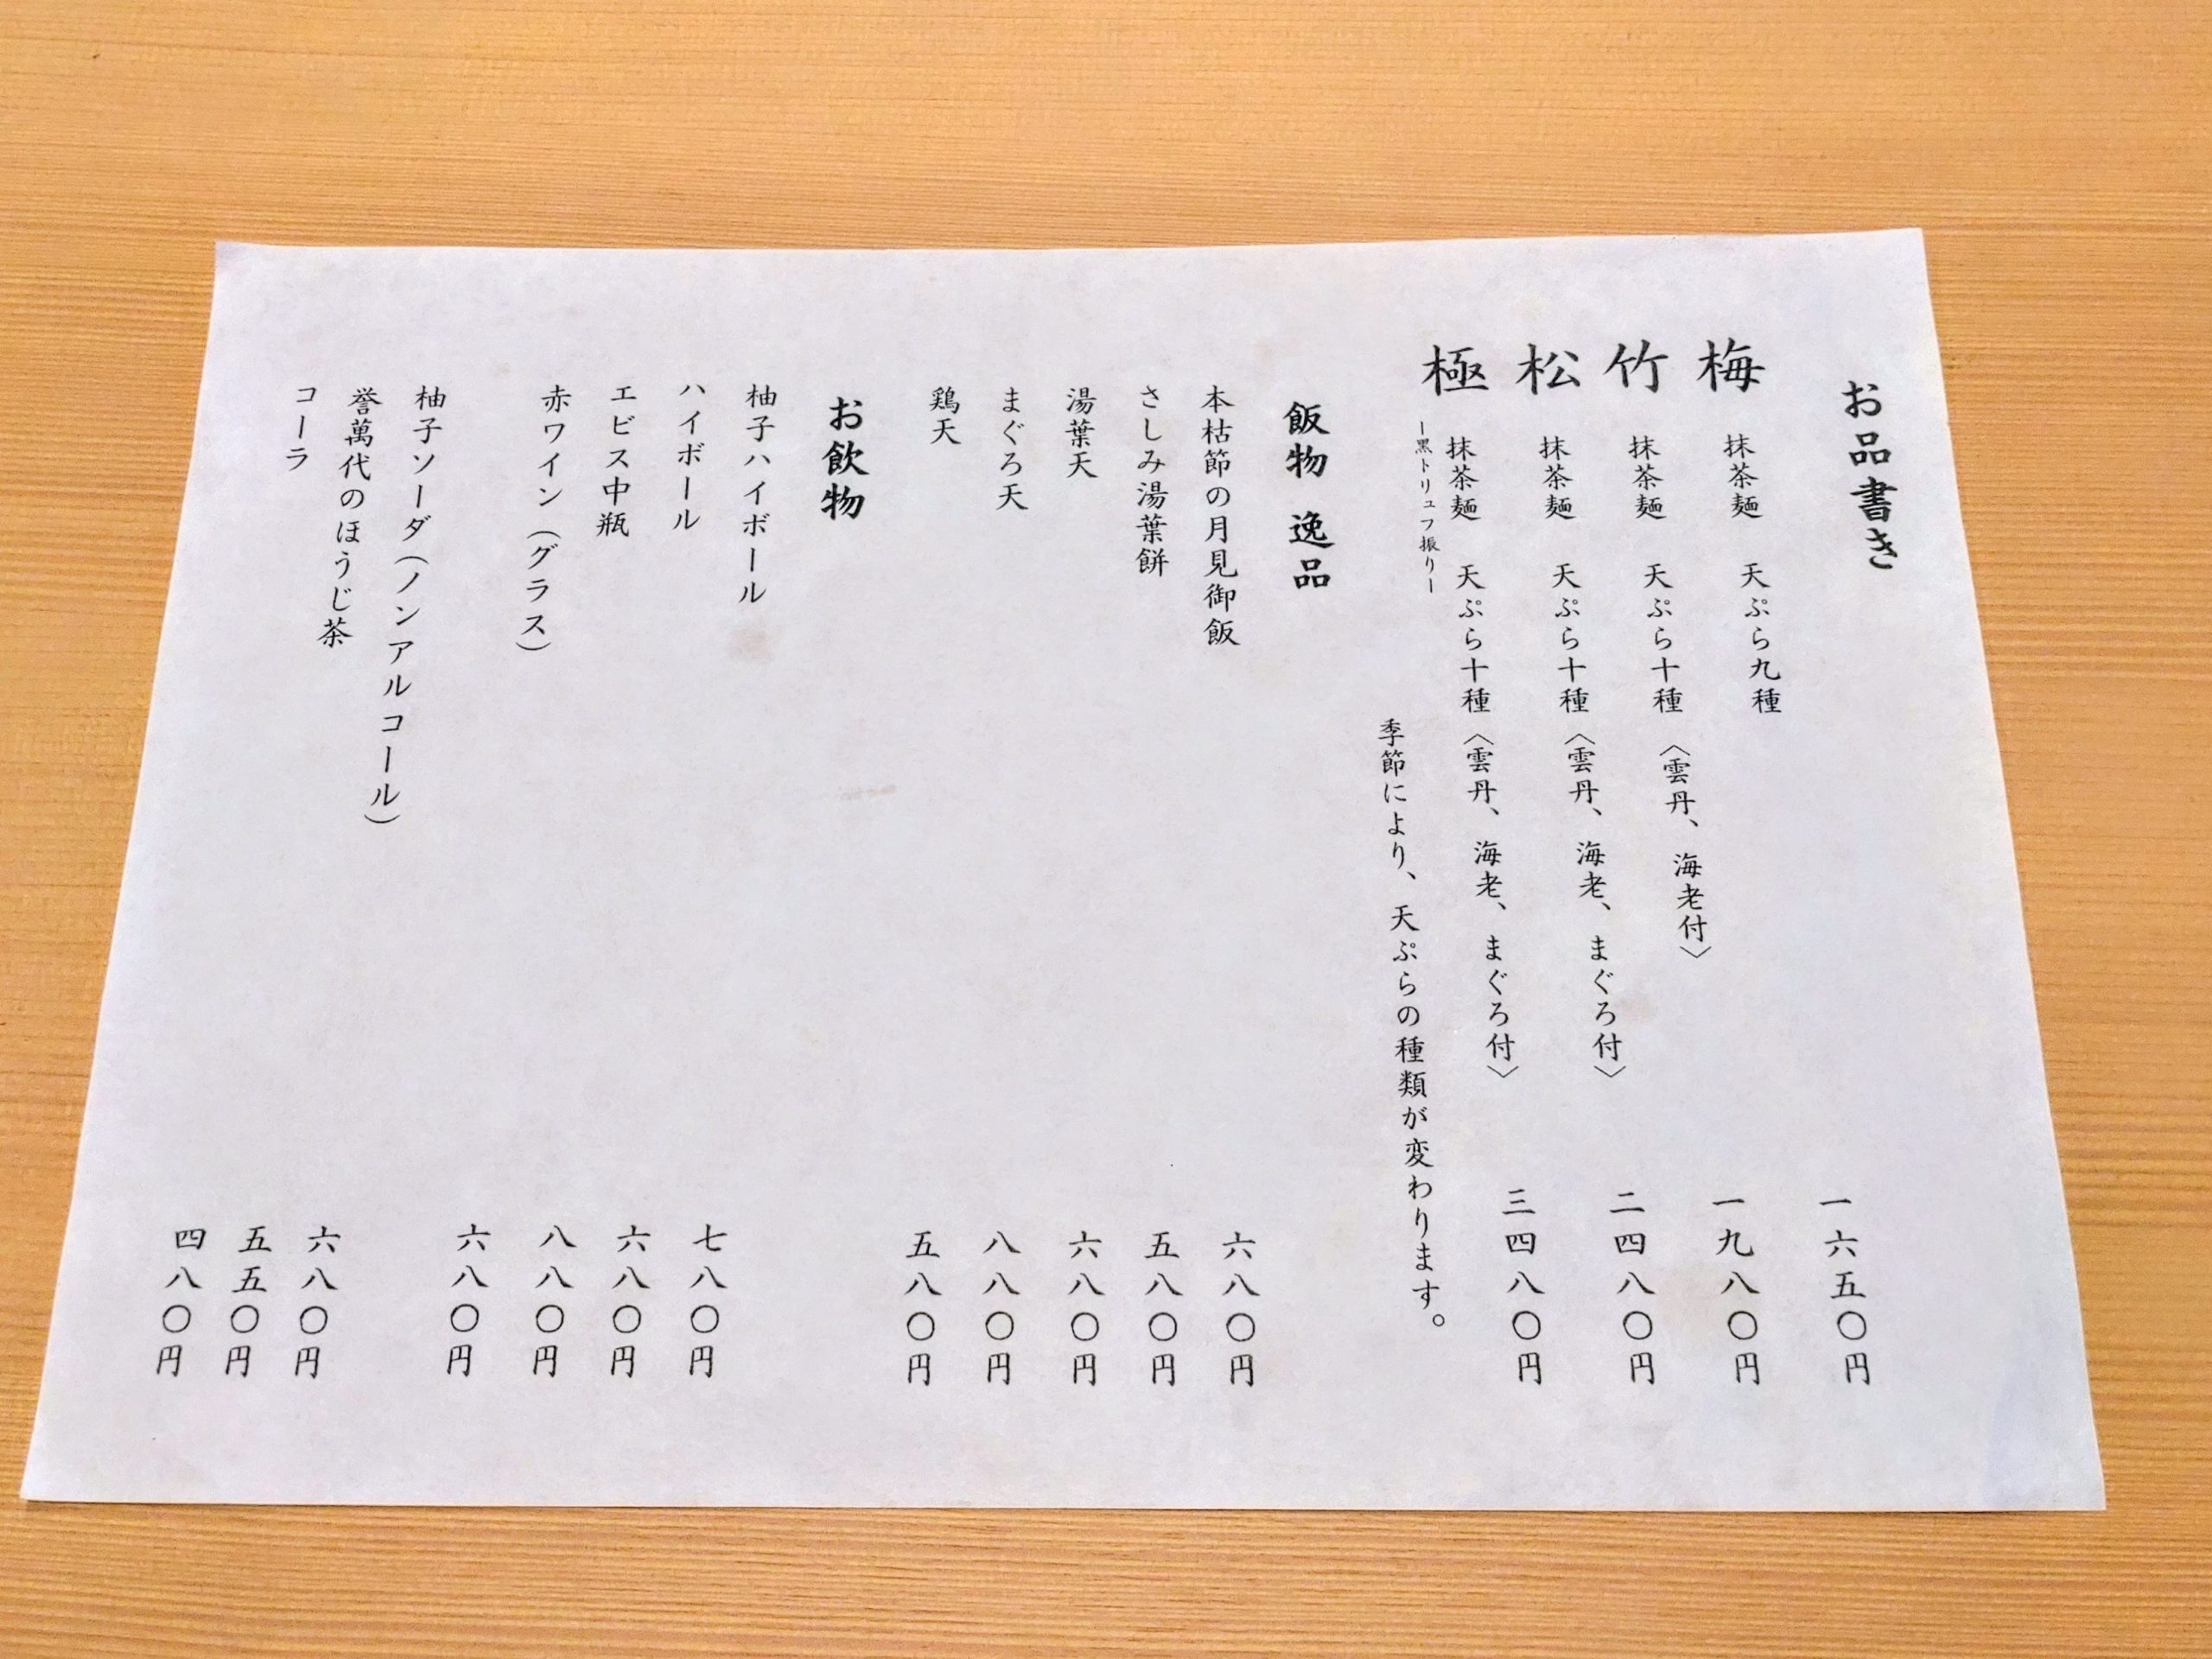 お品書き
梅 抹茶麺 天ぷら九種 一六五〇円
竹 抹茶麺 天ぷら十種〈雲丹、海老付〉 一九八〇円
松 抹茶麺 天ぷら十種〈雲丹、海老、まぐろ付〉 二四八〇円
極 抹茶麺 天ぷら十種〈雲丹、海老、まぐろ付〉 三四八〇円
ー黒トリュフ振りー
季節により、天ぷらの種類が変わります。
飯物 逸品
本枯節の月見御飯 六八〇円
さしみ湯葉餅 五八〇円
湯葉天 六八〇円
まぐろ天 八八〇円
鶏天 五八〇円
お飲物
柚子ハイボール 七八〇円
ハイボール 六八〇円
エビス中瓶 八八〇円
赤ワイン（グラス） 六八〇円
柚子ソーダ（ノンアルコール） 六八〇円
誉萬代のほうじ茶 五五〇円
コーラ 四八〇円